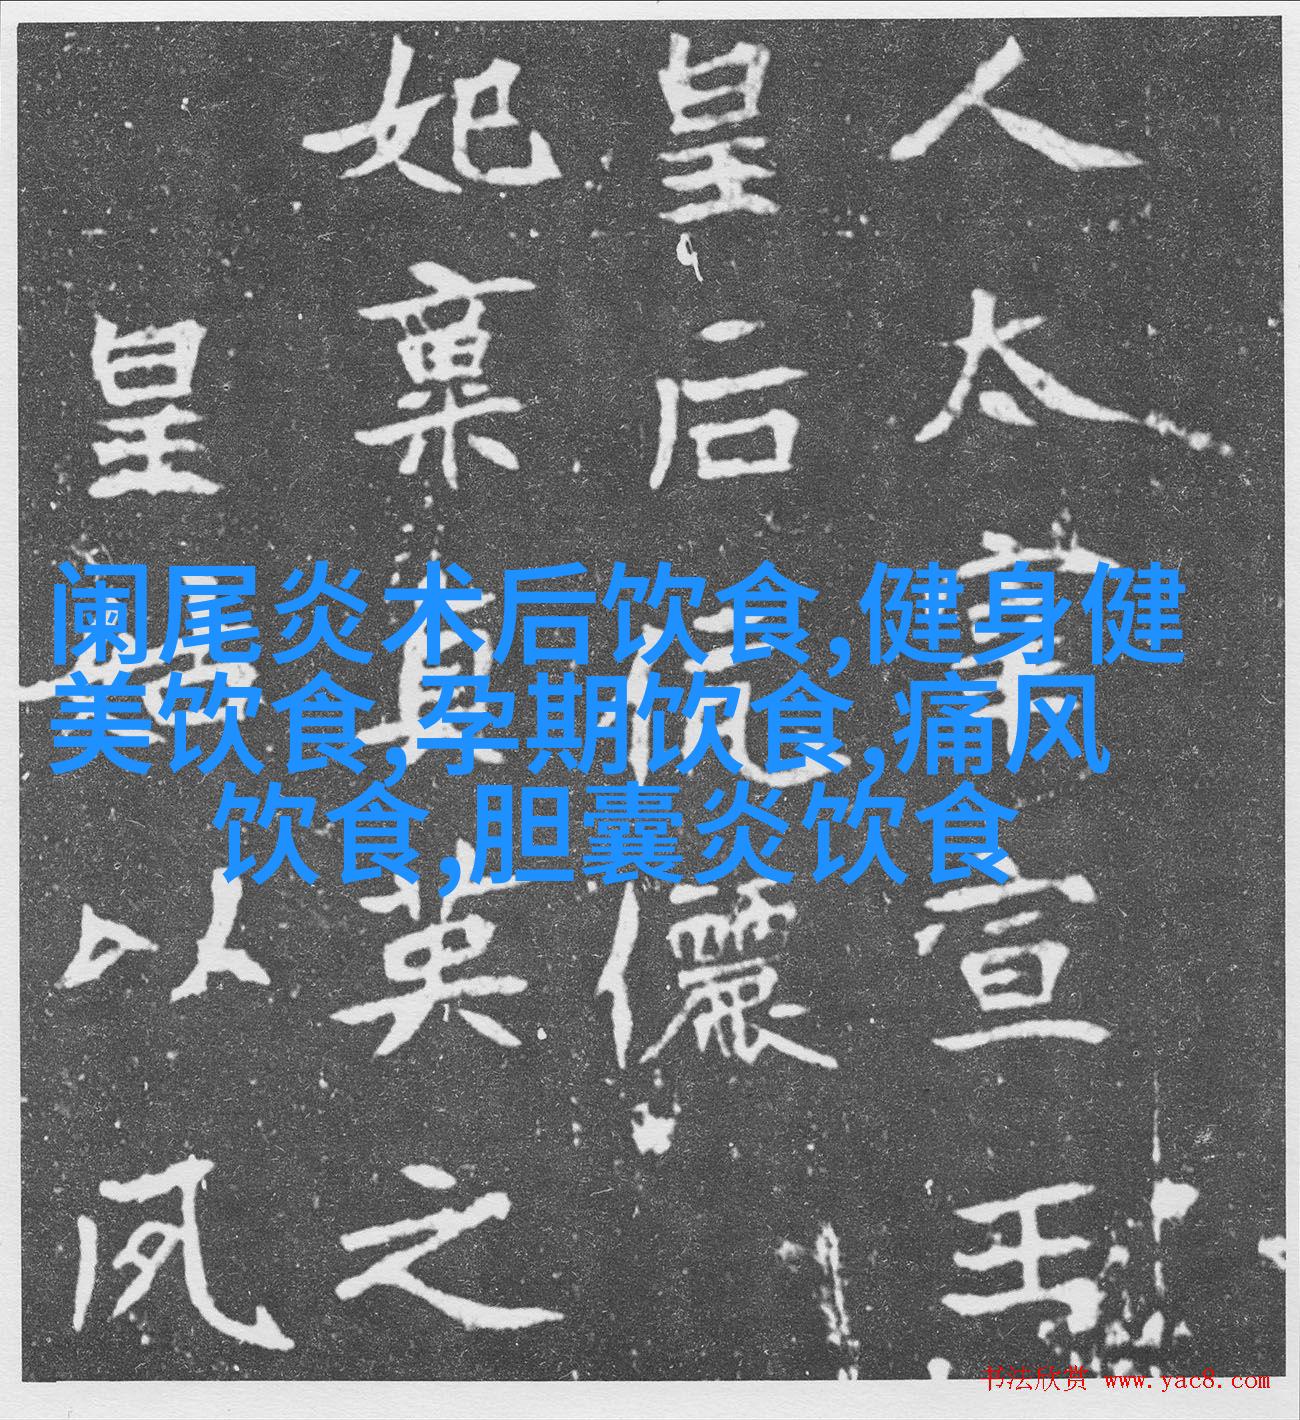 阑尾炎术后饮食,健身健
美饮食,孕期饮食,痛风
饮食,胆囊炎饮食
人太宣王
皇后伉儷
妃稟貞英之
皇以
书法欣赏 www.yac8.com